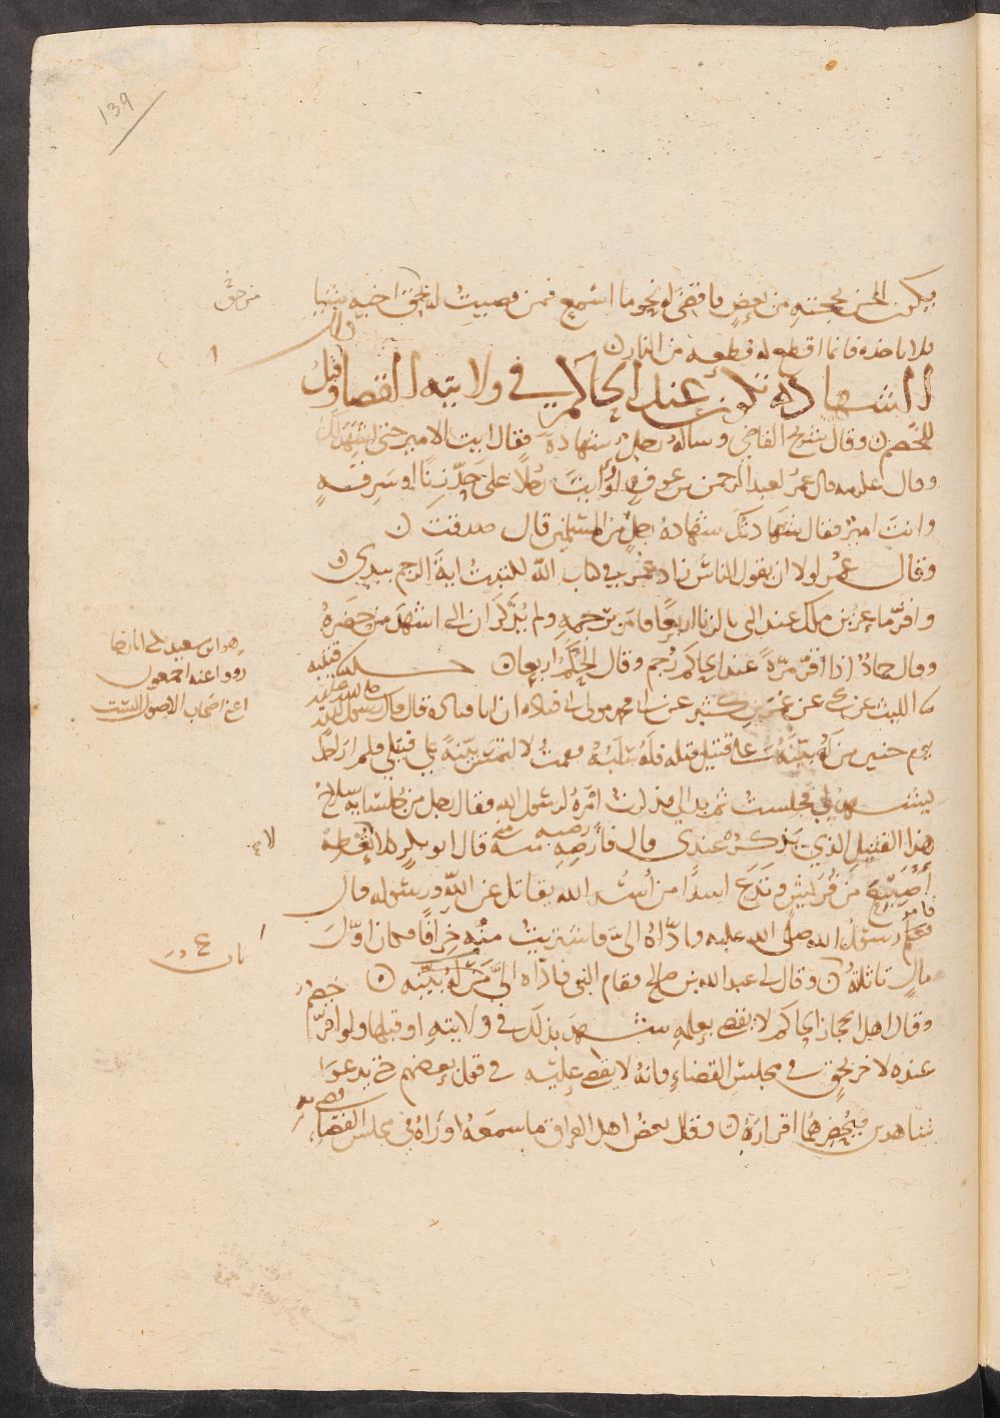 139
يكون الحن بحجته من بعض فاقضى له نحو ما اسمع فمن قضيت له بحق اخيه شيئا
من حق
فلا ياخذه فانما اقطع له قطعة من النار ن
الشهادة تكون عند الحاكم في ولايته القضا او قبل
للخصم ن وقال شريح القاضي وساله رجل شهادة فقال ايت الامير حتى اشهد لك
وقال عكرمه قال عمر لعبد الرحمن بن عوف لو رايت رجلا على حد زنا او سرقة
وانت امير فقال شهادتك شهادة رجل من المسلمين قال صدقت ن
وقال عمر لولا ان يقول الناس زاد عمر في كتاب الله لكتبت اية الرجم بيدي ن
واقر ماعز بن ملك عند النبي بالزنا اربعا فامر برجمه ولم يذكر ان النبي اشهد من حضره
وقال حماد اذا اقر مرة عند الحاكم رجم وقال الحكم اربعا ن قتيبه
الليث عن يحيى عن عمر بن كثير عن ابي محمد مولى ابي قتاده ان ابا قتادة قال قال رسول الله صلى الله عليه
هو ابن سعيد
رووا عنه اجمعون
اعني اصحاب الاصول الستة
يوم حنين من له بينة على قتيل قتله فله سلبه فقمت لالتمس بينة على قتيلي فلم ار احدا
يشهد لي فجلست ثم بدا لي فذكرت امره لرسول الله فقال رجل من جلسايه سلاح
هذا القتيل الذي يذكر عندي قال فارضه منه قال ابو بكر كلا لا يعطه
اصيبغ من قريش وتدع اسدا من اسد الله يقاتل عن الله ورسوله قال
فقام رسول الله صلى الله عليه فاداه الي فاشتريت منه خرافا فكان اول
مال تاثلته ن وقال لي عبد الله بن صالح فقام النبي فاداه الي من له بينه ن
وقال اهل الحجاز الحاكم لا يقضي بعلمه شهد بذلك في ولايته او قبلها ولو اقر خصم
عنده لاخر بحق في مجلس القضاء فانه لا يقضي عليه في قول بعضهم حتى يدعو
شاهدين فيحضرهما اقراره ن وقال بعض اهل العراق ما سمعه او راه في مجلس القضاء قضى به